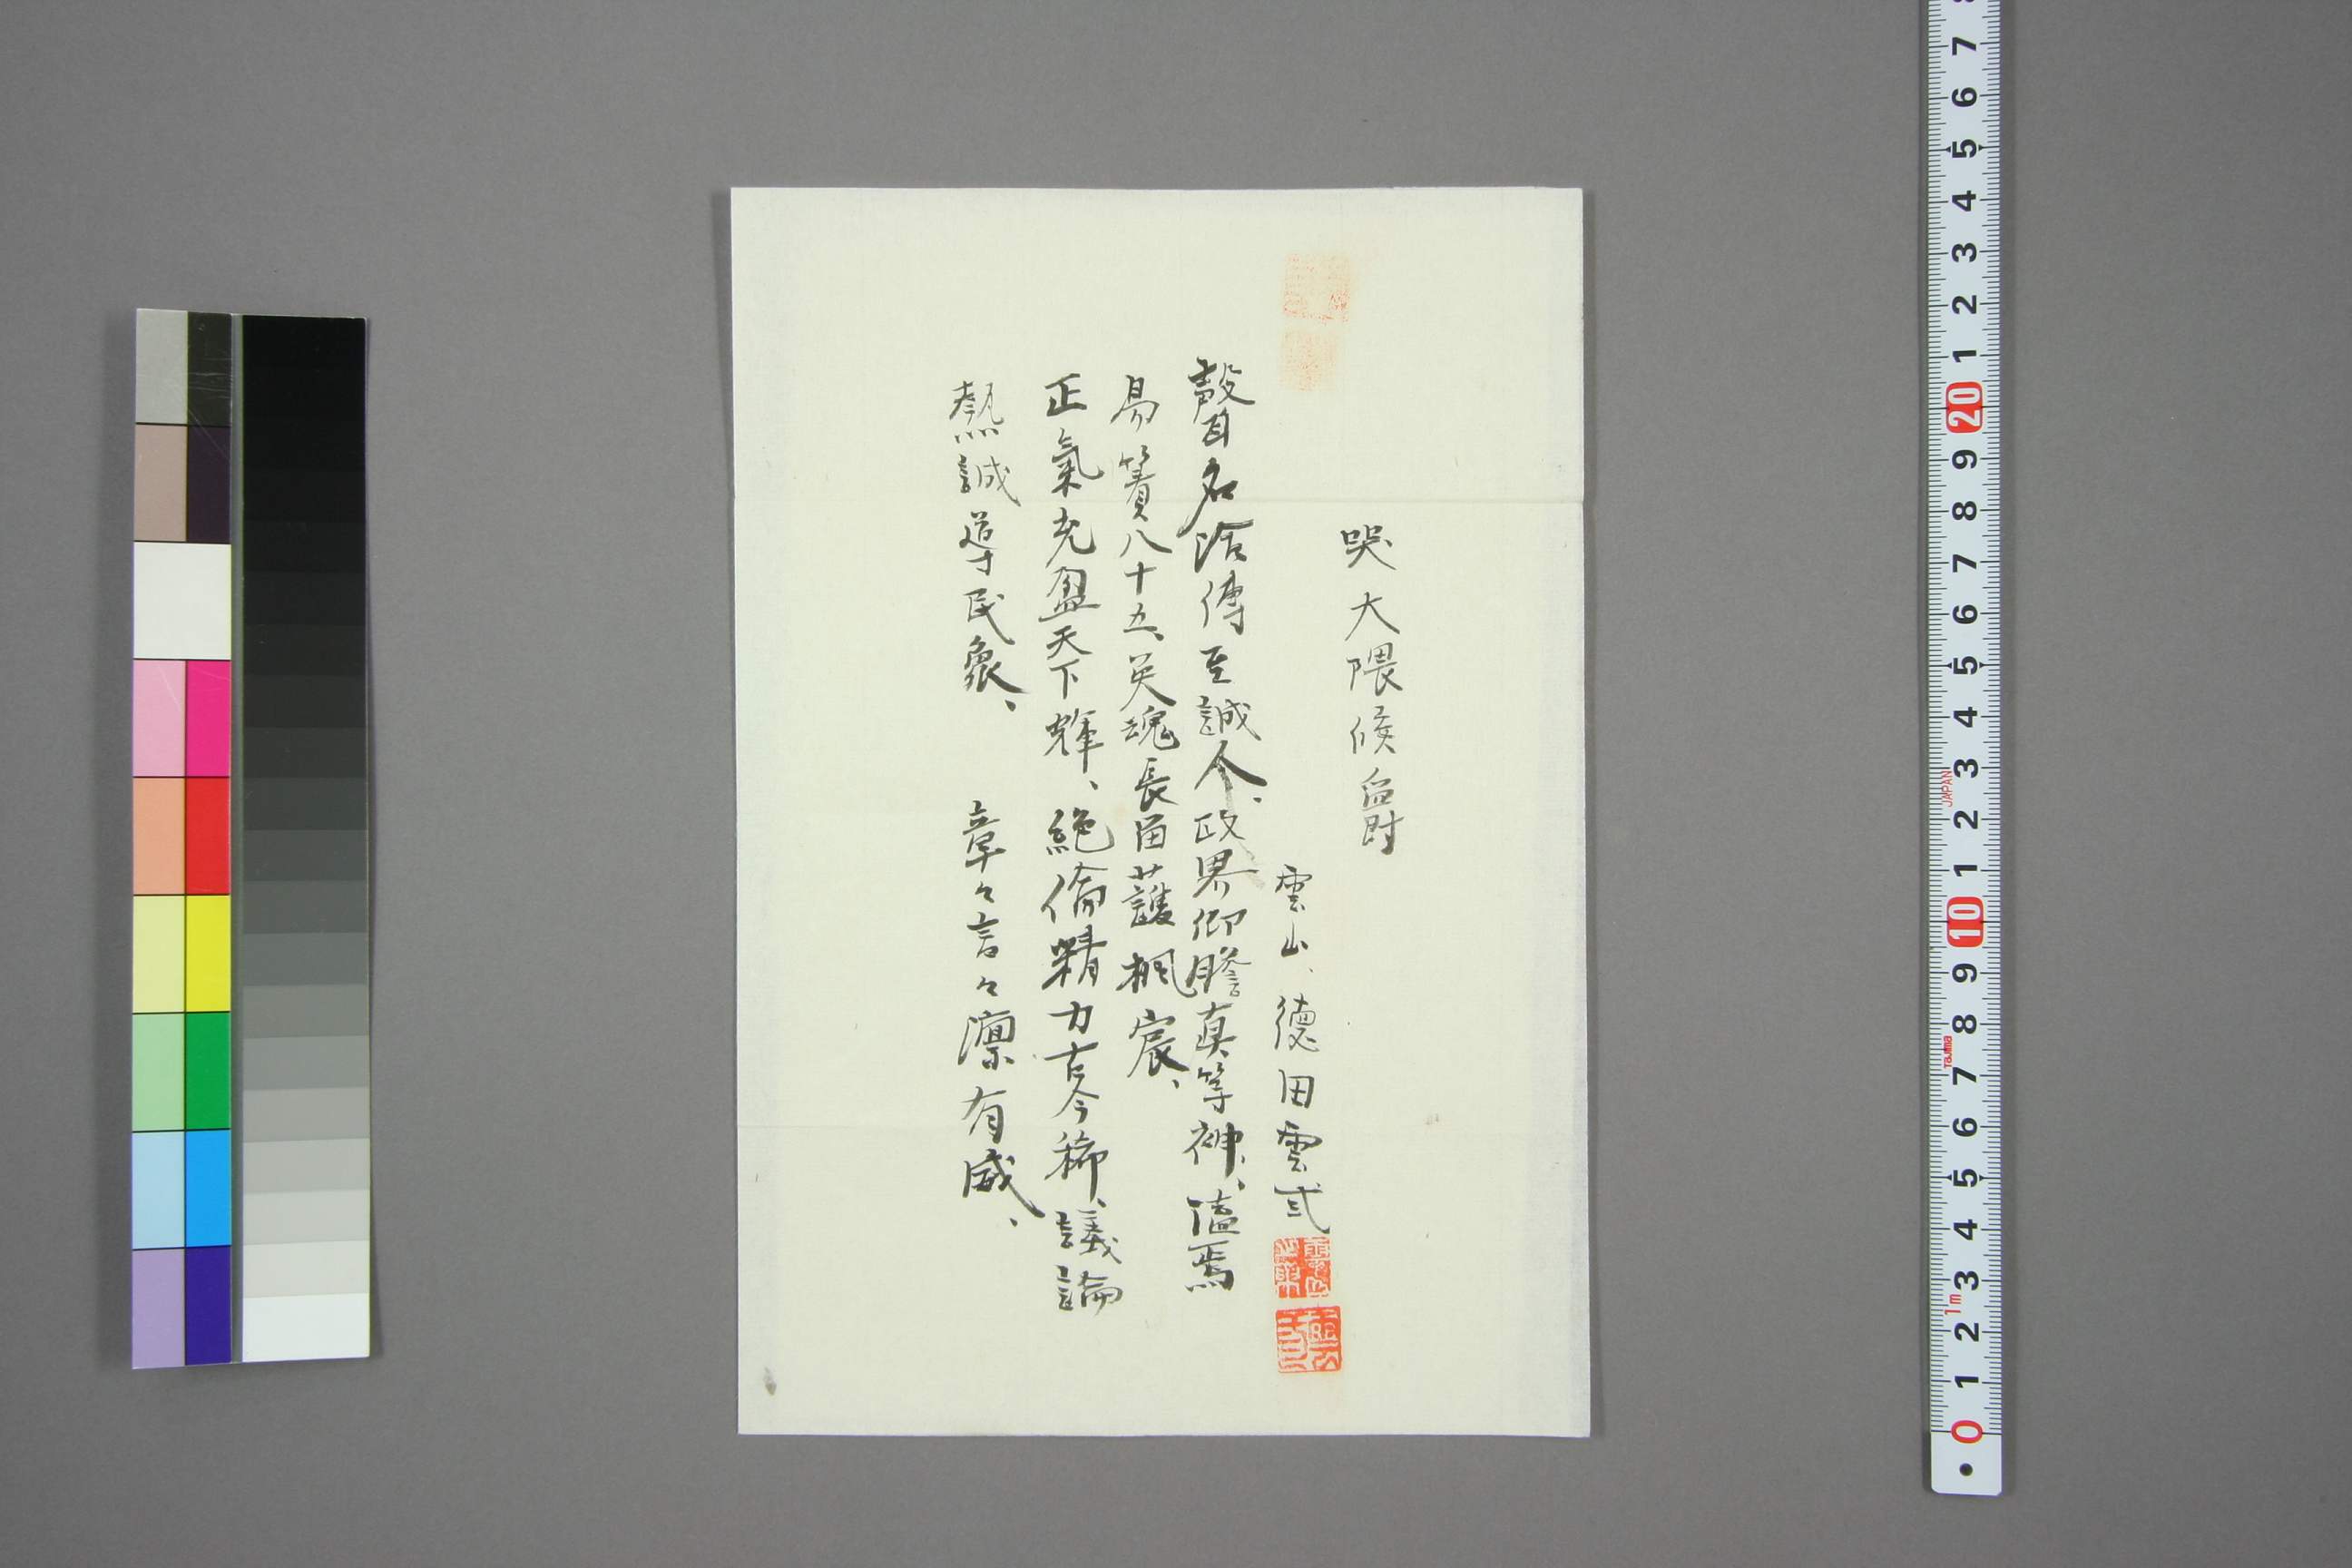 哭大隈候爵
雲山、德田雲弐
聲名洽傳至誠人、政界仰瞻真等神、溘焉
易簀八十五、英魂長留護楓宸、
正氣充盈天下輝、絶倫精力古今稀、議論
熱誠導民衆、　章々言々凛有威、
7 6 5 4 3 2 1 20 9 8 7 6 5 4 3 2 1 10 9 8 7 6 5 4 3 2 1 0
JAPAN
Tajima
1m